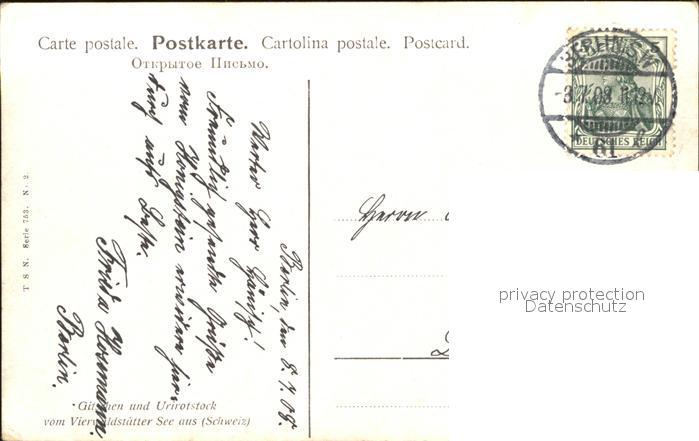 Carte postale. Postkarte. Cartolina postale. Postcard.
Открытое Письмо.
BERLIN S.W
61
5
DEUTSCHES REICH
Berlin, den 8.7.08.
Werter Herr
Freundlich gesandte Grüße
vom Königstein erwidere hier-
durch aufs Beste.
Frida
Berlin.
Herrn
privacy protection
Datenschutz
T S N. Serie 753. N. 2.
Gitschen und Urirotstock
vom Vierwaldstätter See aus (Schweiz)